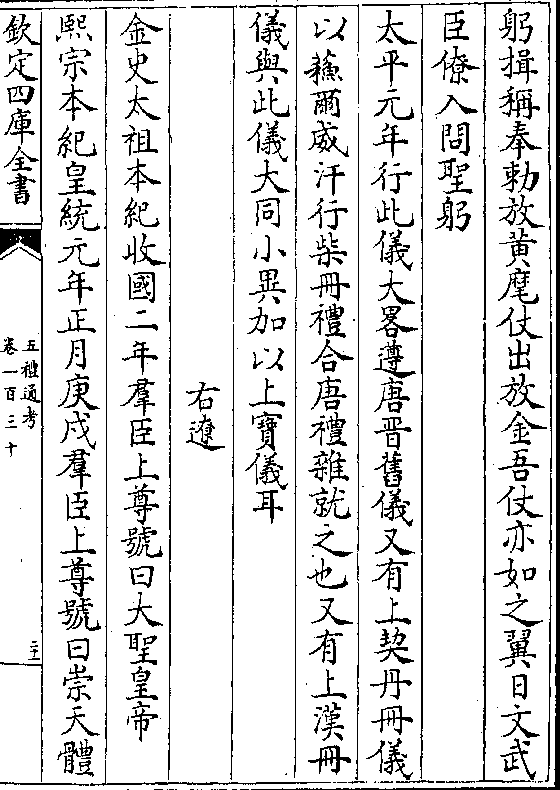 躬揖稱奉勅放黄麾仗出放金吾仗亦如之翼日文武
臣僚入問聖躬
太平元年行此儀大畧遵唐晉舊儀又有上契丹冊儀
以蘓爾威汗行柴冊禮合唐禮雜就之也又有上漢冊
儀與此儀大同小異加以上寶儀耳
右遼
金史太祖本紀收國二年羣臣上尊號曰大聖皇帝
熙宗本紀皇統元年正月庚戌羣臣上尊號曰崇天體
欽定四庫全書
五禮通考
卷一百三十
二十一